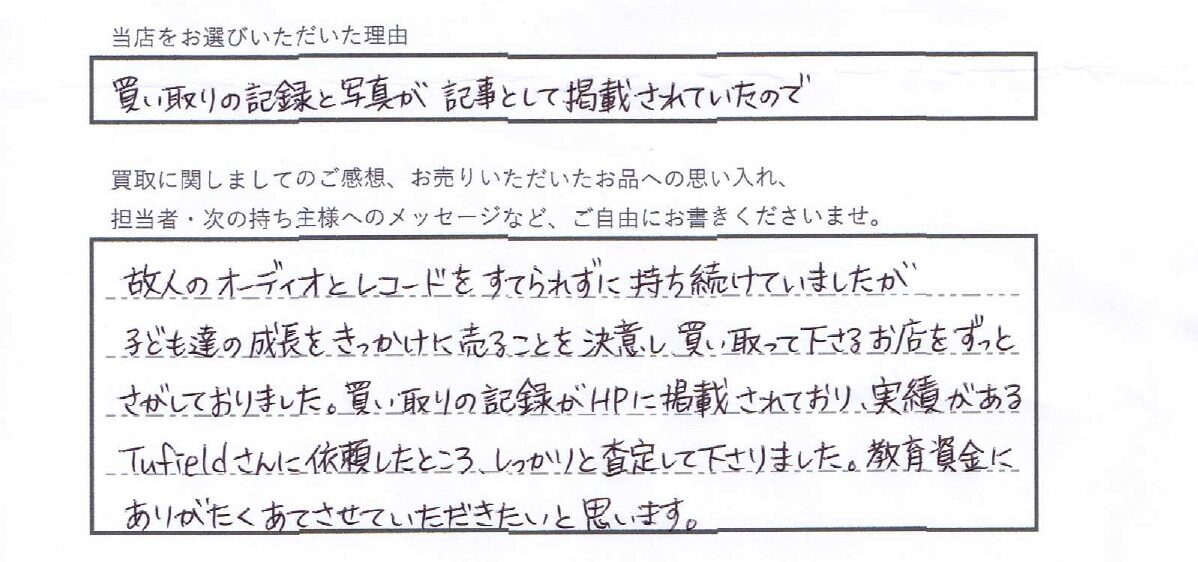 当店をお選びいただいた理由
買い取りの記録と写真が記事として掲載されていたので
買取に関しましてのご感想、お売りいただいたお品への思い入れ、
担当者・次の持ち主様へのメッセージなど、ご自由にお書きくださいませ。
故人のオーディオとレコードをすてられずに持ち続けていましたが
子ども達の成長をきっかけに売ることを決意し、買い取って下さるお店をずっと
さがしておりました。買い取りの記録がHPに掲載されており、実績がある
Tufieldさんに依頼したところ、しっかりと査定して下さりました。教育資金に
ありがたくあてさせていただきたいと思います。